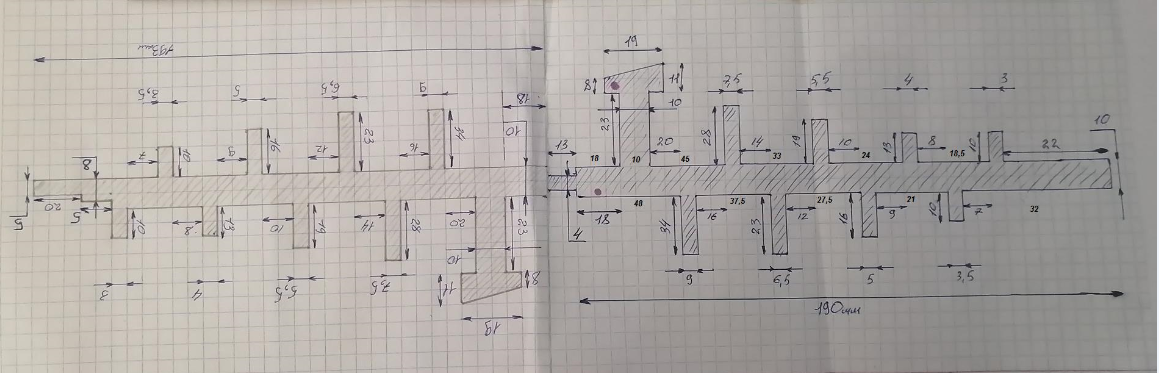 193мм
3,5
5
6,5
9
18
10
7
10
9
16
12
23
16
34
8
20
5
5
10
8
13
10
19
14
28
20
23
10
3
4
5,5
7,5
11
8
19
19
8
11
7,5
5,5
4
3
10
23
10
28
19
13
10
13
20
14
10
8
22
18
10
45
33
24
18,5
18
48
37,5
27,5
21
32
34
16
23
12
16
9
10
7
4
9
6,5
5
3,5
190мм